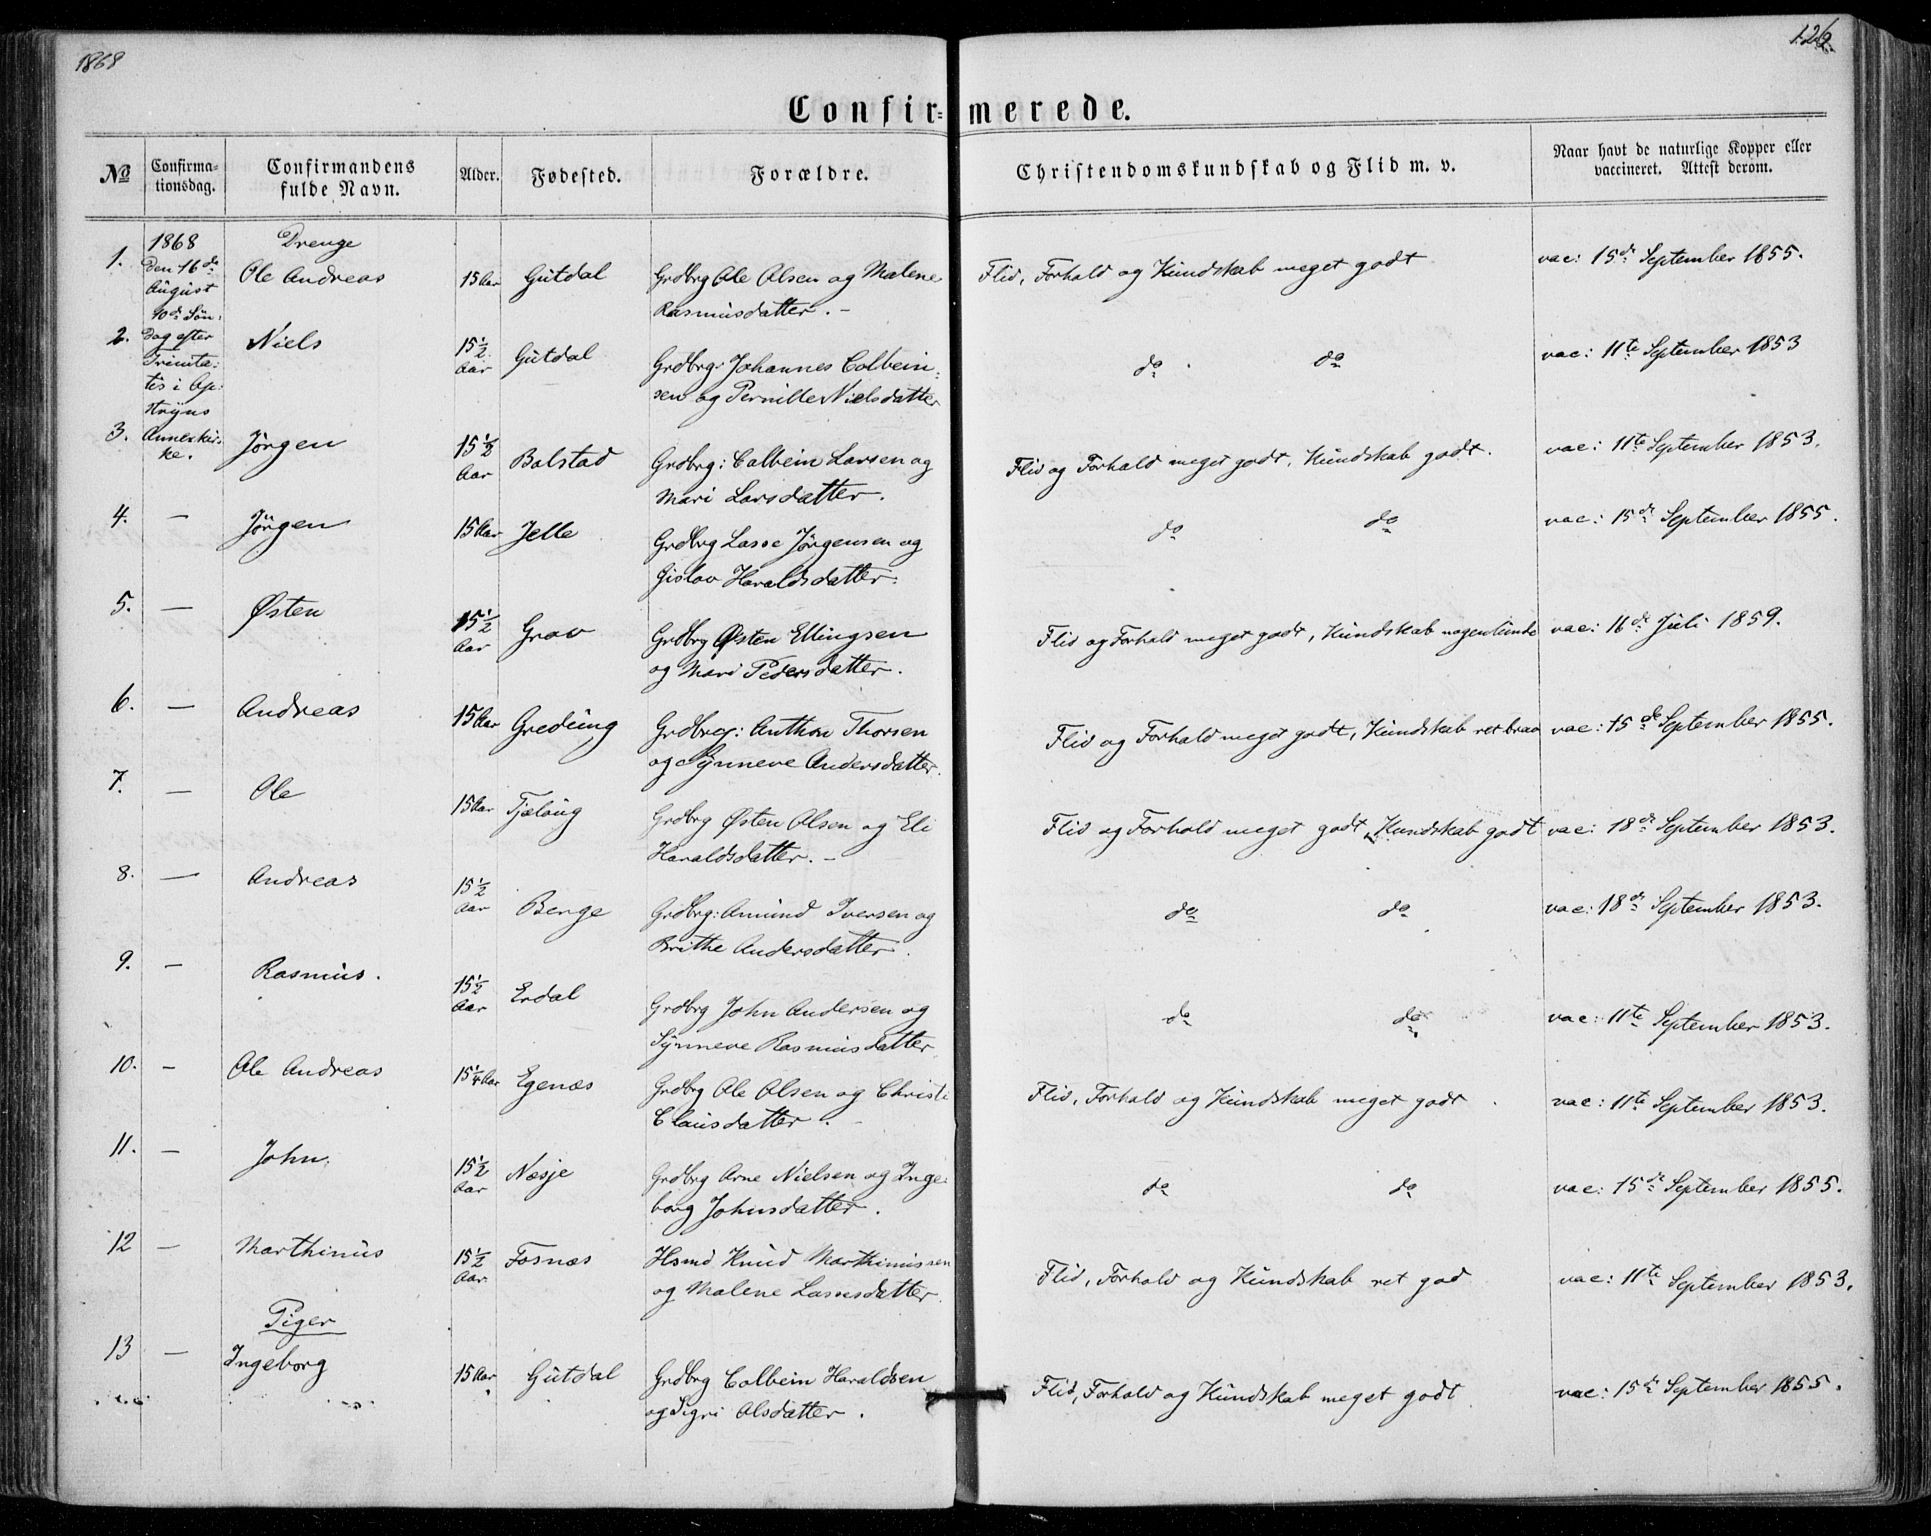 1868
126.
Confirmerede.
No
Confirmationsdag.
Confirmandens fulde Navn.
Alder.
Fødested.
Forældre.
Christendomskundskab og Flid m. v.
Naar havt de naturlige Kopper eller vaccineret. Attest derom.
1868
den 16de
August
10de Søn:
dag efter
Trinita:
tis i Op:
stryns
Annexkir:
ke.
Drenge
1. Ole Andreas 15 Aar Gutdal Grdbrg Ole Olsen og Malene Flid, Forhold og Kundskab meget godt vac: 15de September 1855.
Rasmusdatter. -
2. Niels 15 1/2 Aar Gutdal Grdbrg: Johannes Colbein: do do vac: 11te September 1853
sen og Pernille Nielsdatter
3. Jørgen 15 1/2 Aar Bolstad Grdbrg: Colbein Larsen og Flid og Forhold meget godt, Kundskab godt. vac: 11te September 1853.
Mari Larsdatter.
4. — Jørgen 15 Aar Jelle Grdbrg Lasse Jørgensen og do do vac: 15de September 1855.
Gislov Haraldsdatter.
5. — Østen 15 1/2 Aar Grov Grdbrg Østen Ellingsen Flid og Forhold meget godt, Kundskab nogenlunde vac: 16de Juli 1859.
og Mari Pedersdatter.
6. — Andreas 15 Aar Greding Grdbrg: Anthon Thorsen Flid og Forhold meget godt, Kundskab ret braa vac: 15de September 1855.
og Synneve Andersdatter.
7. — Ole 15 Aar Tjelaug Grdbrg Østen Olsen og Eli Flid og Forhold meget godt, Kundskab godt vac: 18de September 1853.
Haraldsdatter. -
8. — Andreas 15 1/2 Aar Berge Grdbrg: Amund Iversen og do do vac: 18de September 1853.
Brithe Andersdatter.
9. — Rasmus. 15 1/2 Aar Erdal Grdbrg John Andersen og do do vac: 11te September 1853.
Synneve Rasmusdatter
10. — Ole Andreas 15 1/4 Aar Egenæs Grdbrg Ole Olsen og Christi Flid, Forhold og Kundskab meget godt. vac: 11te September 1853.
Clausdatter. -
11. — John. 15 1/2 Aar Næsje Grdbrg Arne Nielsen og Inge: do do vac: 15de September 1855.
borg Johnsdatter.
12 — Marthinus 15 1/2 Aar Fosnæs Hsmd Knud Marthinussen Flid, Forhold og Kundskab ret god vac: 11te September 1853.
og Malene Lassesdatter.
Piger
13 — Ingeborg 15 Aar Gutdal Grdbrg Colbein Haraldsen Flid, Forhold og Kundskab meget godt vac: 15de September 1855.
og Sigri Olsdatter.